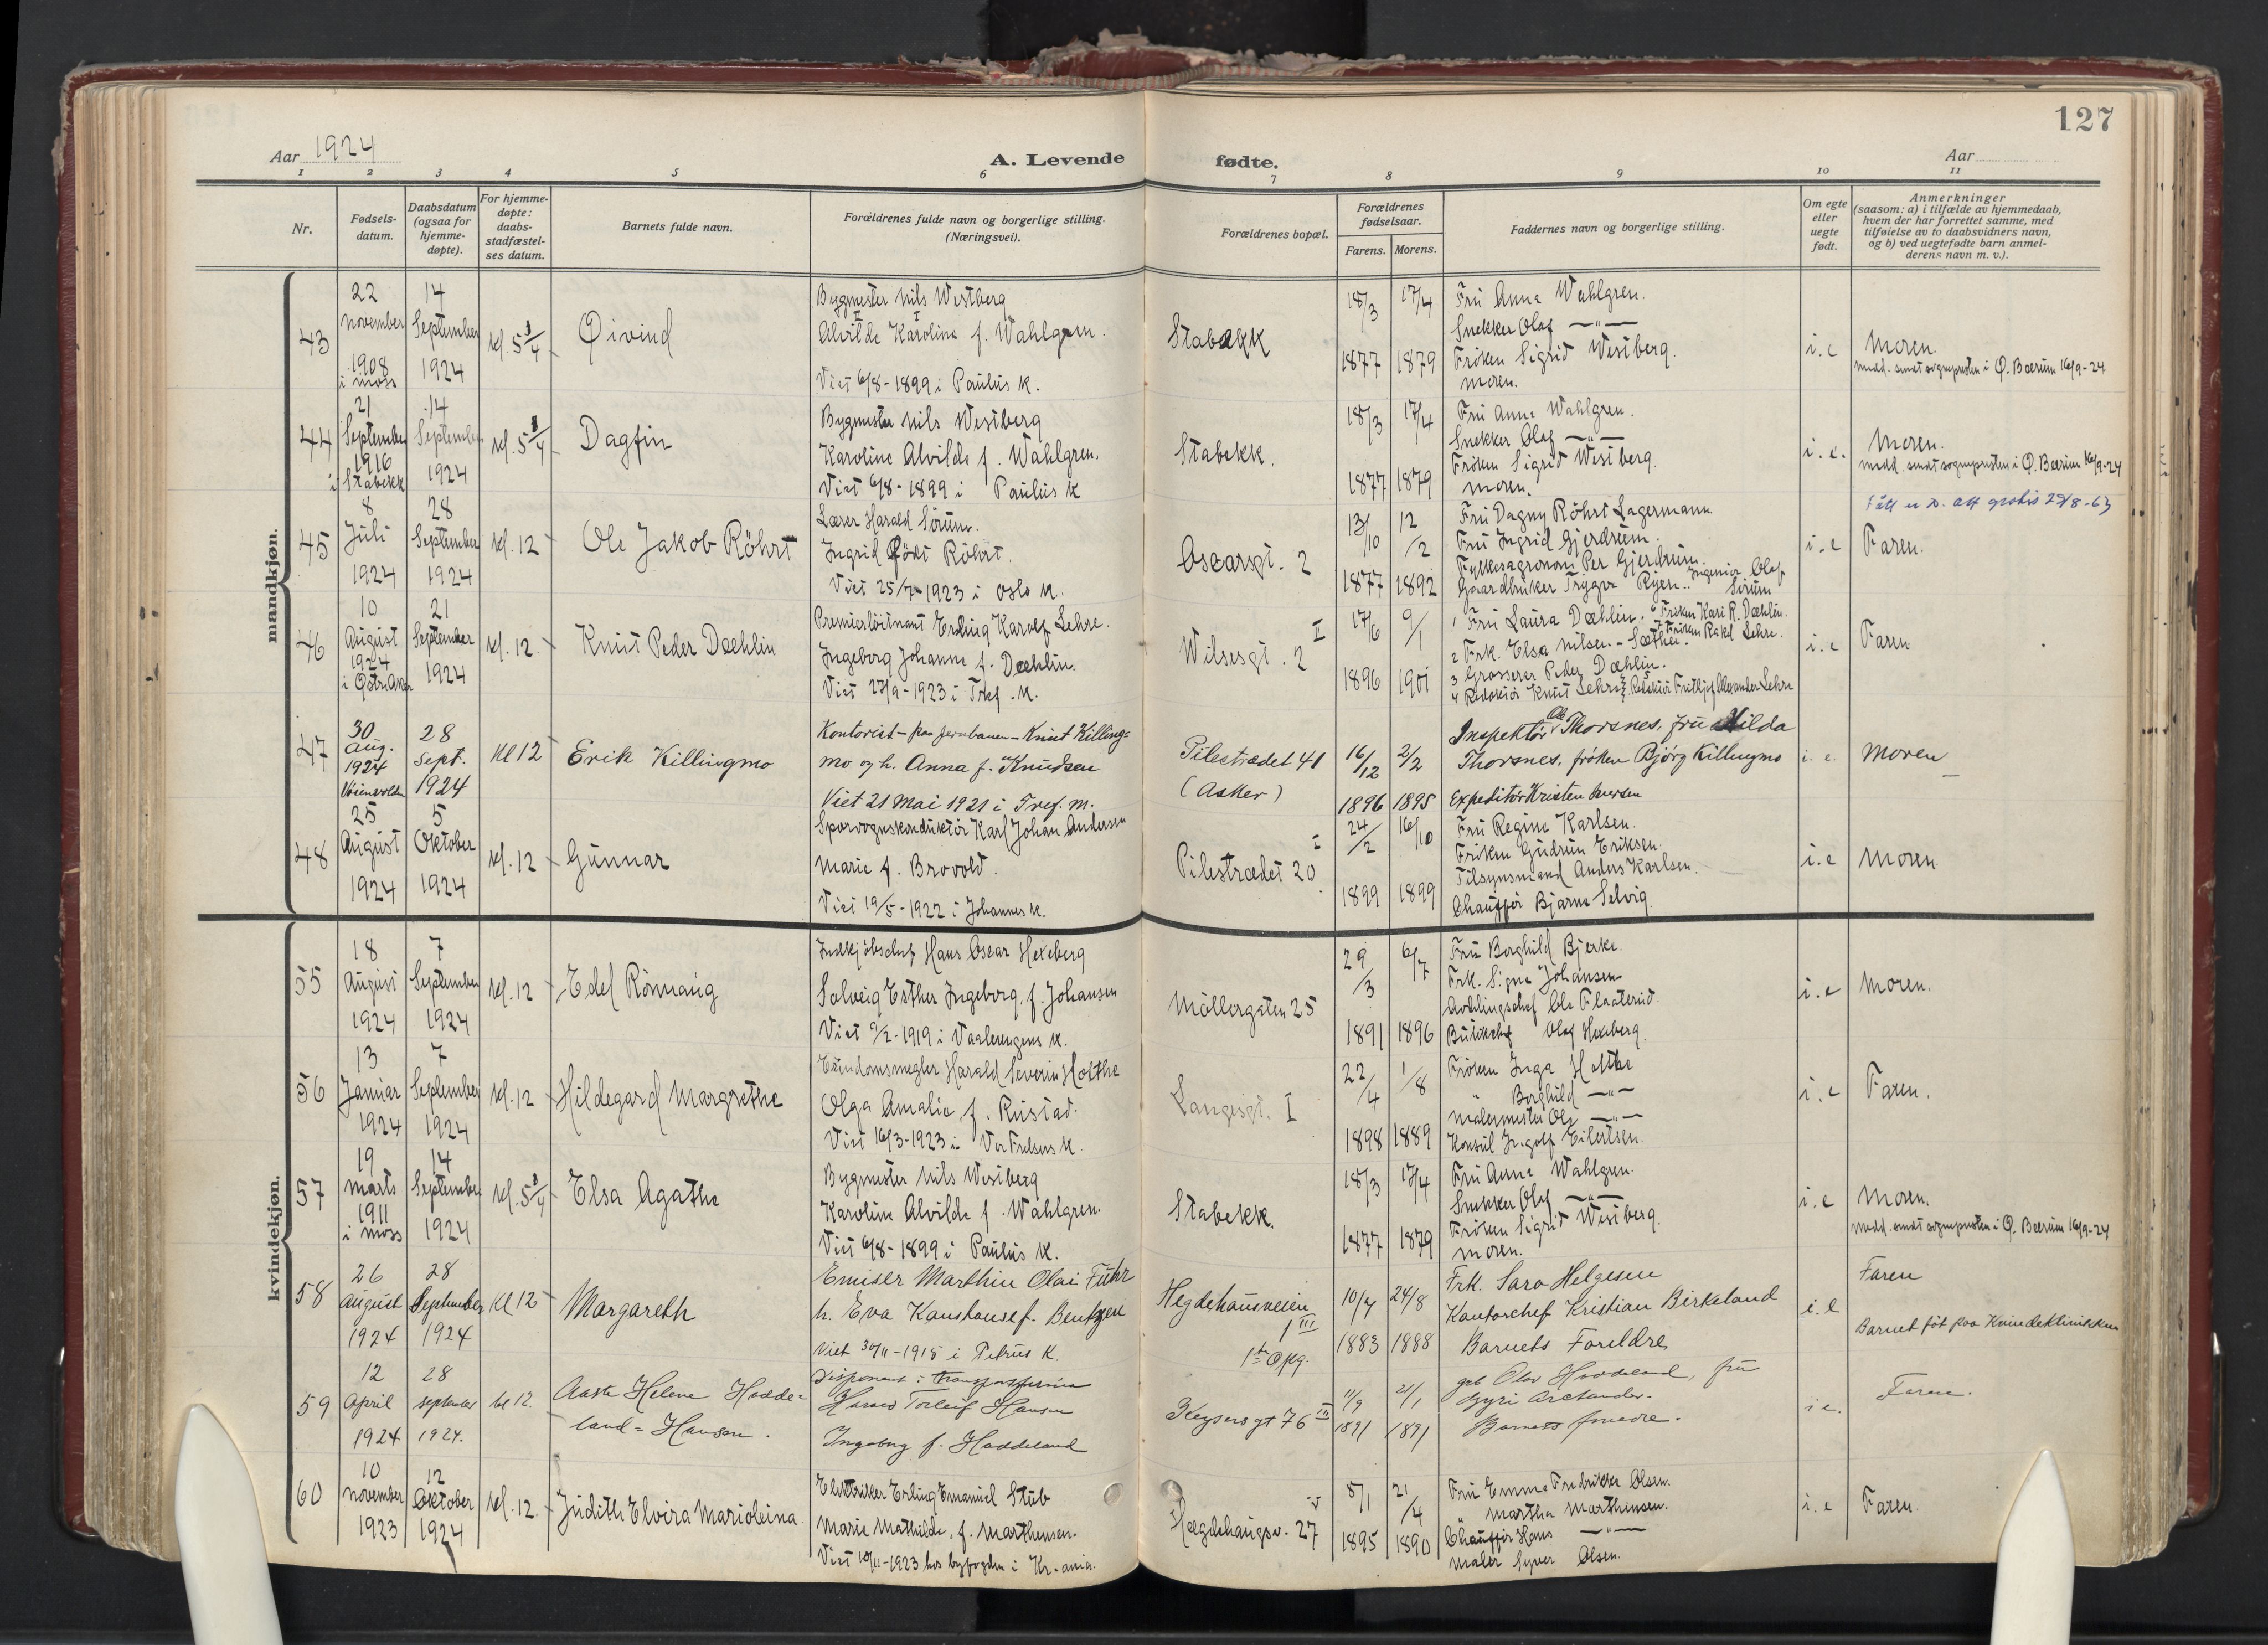 127
Aar 1924
A. Levende fødte.
Aar
1 2 3 4 5 6 7 8 9 10 11
Nr.
Fødsels-
datum.
Daabsdatum
(ogsaa for
hjemme-
døpte).
For hjemme-
døpte:
daabs-
stadfæstel-
ses datum.
Barnets fulde navn.
Forældrenes fulde navn og borgerlige stilling.
(Næringsvei).
Forældrenes bopæl.
Forældrenes
fødselsaar.
Farens. Morens.
Faddernes navn og borgerlige stilling.
Om egte
eller
uegte
født.
Anmerkninger
(saasom: a) i tilfælde av hjemmedaab,
hvem der har forrettet samme, med
tilføielse av to daabsvidners navn,
og b) ved uegtefødte barn anmel-
derens navn m. v.).
mandkjøn.
43
22
November
1908
i Moss
14
September
1924
kl. 5 3/4
Øivind
Bygmester Nils Westberg
Alvilde Karoline f. Wahlgren.
Viet 6/8-1899 i Paulus k.
Stabekk
18/3
1877
17/4
1879
Fru Anna Wahlgren.
Snekker Olaf —"—
Frøken Sigrid Westberg.
Moren.
i. e
Moren.
medd. sendt sogneprsten i Ø. Bærum 16/9-24
44
21
September
1916
i Stabekk
14
September
1924
kl. 5 3/4
Dagfin
Bygmester Nils Westberg
Karoline Alvilde f. Wahlgren.
Viet 6/8-1899 i Paulus k
Stabekk.
18/3
1877
17/4
1879
Fru Anna Wahlgren.
Snekker Olaf —"—
Frøken Sigrid Westberg.
Moren.
i. e.
Moren.
medd. sendt sogneprsten i Ø. Bærum 16/9-24
45
8
Juli
1924
28
September
1924
kl. 12
Ole Jakob Röhrt
Lærer Harald Sörum.
Ingrid født Röhrt.
Viet 25/7-1923 i Oslo k.
Oscarsgt. 2
13/10
1877
12/2
1892
Fru Dagny Röhrt Lagermann
Fru Ingrid Gjerdrum.
Fylkesagronom Per Gjerdrum.
Gaardbruker Trygve Ryen. Ingeniør Olaf
Sörum
i. e
Få att gratis 29/8-63
Faren.
46
10
August
1924
i Östr. Aker
21
September
1924
kl. 12
Knut Peder Dæhlin
Premierlöitnant Erling Karolf Lehre.
Ingeborg Johanne f. Dæhlin.
Viet 27/9-1923 i Tref. k.
Wilsesgt. 2 II
17/6
1896
9/1
1901
1 Fru Laura Dæhlin. 6 Frøken Kari R. Dæhlin.
2 Frk. Elsa Nilsen-Sæther. 7 Frøken Rakel Lehre.
3 Grosserer Peder Dæhlin.
4 Redaktør Knut Lehre, 5 Redaktör Fritljof Alexander Lehre
i. e
Faren
47
30
Aug.
1924
28
Sept.
1924
Kl 12
Erik Killingmo
Kontorist - paa jernbanen - Knut Killing=
mo og h. Anna f. Knudsen
Viet 21 Mai 1921 i Tref. M.
Pilestrædet 41
(Asker)
16/12
1896
2/2
1895
Inspektör Ole Thorsnes, fru Hilda
Thorsnes, fröken Björg Killingmo
Expeditör Kristen Iversen
i. e.
Moren
48
25
August
1924
5
Oktober
1924
kl. 12
Gunnar
Sporvognskonduktör Karl Johan Andersen
Marie f. Brovold.
Viet 19/5-1922 i Johannes k.
Pilestrædet 20 I
24/2
1899
16/10
1899
Fru Regine Karlsen.
Frøken Gudrun Eriksen.
Tilsynsmand Anders Karlsen.
Chauffør Bjarne Selvig.
i. e
Moren
kvindekjøn.
55
18
August
1924
7
September
1924
kl. 12
Edel Rönnaug
Indkjøbschef Hans Oscar Hexeberg
Solveig Esther Ingeborg, f. Johansen
Viet 9/2-1919 i Vaalerengens k.
Möllergaten 25
29/3
1891
6/7
1896
Fru Borghild Bjerke.
Frk. Signe Johansen
Avdelingschef Ole Flaaterud.
Butikchef Olaf Hexeberg.
i. e
Moren.
56
13
Januar
1924
7
September
1924
kl. 12
Hildegard Margrethe
Eiendomsmegler Harald Severin Holthe
Olga Amalie f. Rustad.
Viet 16/3-1923 i Vor Frelsers k.
Langesgt. I
22/4
1898
1/8
1889
Frøken Inga Holthe
" Borghild —"—
Malermester Ole —"—
Konsul Ingolf Eilertsen.
i. e
Faren.
57
19
Marts
1911
i Moss
14
September
1924
kl. 5 3/4
Elsa Agathe
Bygmester Nils Westberg
Karoline Alvilde f. Wahlgren.
Viet 6/8-1899 i Paulus k.
Stabekk.
18/3
1877
17/4
1879
Fru Anna Wahlgren.
Snekker Olaf —"—
Frøken Sigrid Westberg.
Moren.
i. e
Moren.
medd. sendt sogneprsten i Ø. Bærum 16/9-24
58
26
August
1924
28
September
1924
Kl 12
Margareth
Emisær Marthin Olai Fuhr
h. Eva Kanshause f. Bentzen
Viet 30/11-1915 i Petrus K.
Hegdehausveien
1 III
1ste Opg.
10/7
1883
24/8
1888
Frk. Sara Helgesen
Kantorchef Kristian Birkeland
Barnets Forældre
i. e
Faren
Barnet föt paa Kvindeklinikken
59
12
April
1924
28
september
1924.
kl 12.
Aaste Helene Hodde=
land=Hanson.
Disponent i transportfirma
Harald Torleif Hansen
Ingeborg f. Haddeland
Keysersgt 76 III
11/9
1891
21/1
1891
gbr Olav Hoddeland, fru
Gyri Archander.
Barnets forældre.
i e.
Faren.
60
10
November
1923
12
Oktober
1924
kl. 12.
Judith Elvira Marioleina
Elektriker Erling Emanuel Stub
Marie Mathilde, f. Marthinsen.
Viet 10/11-1923 hos byfogden i Kr.ania.
Hægdehaugsv. 27 V
5/1
1895
21/4
1890
Fru Emma Fredrikke Olsen.
" Martha Marthinsen.
Chauffør Hans —"—
Maler Syver Olsen.
i. e
Faren.